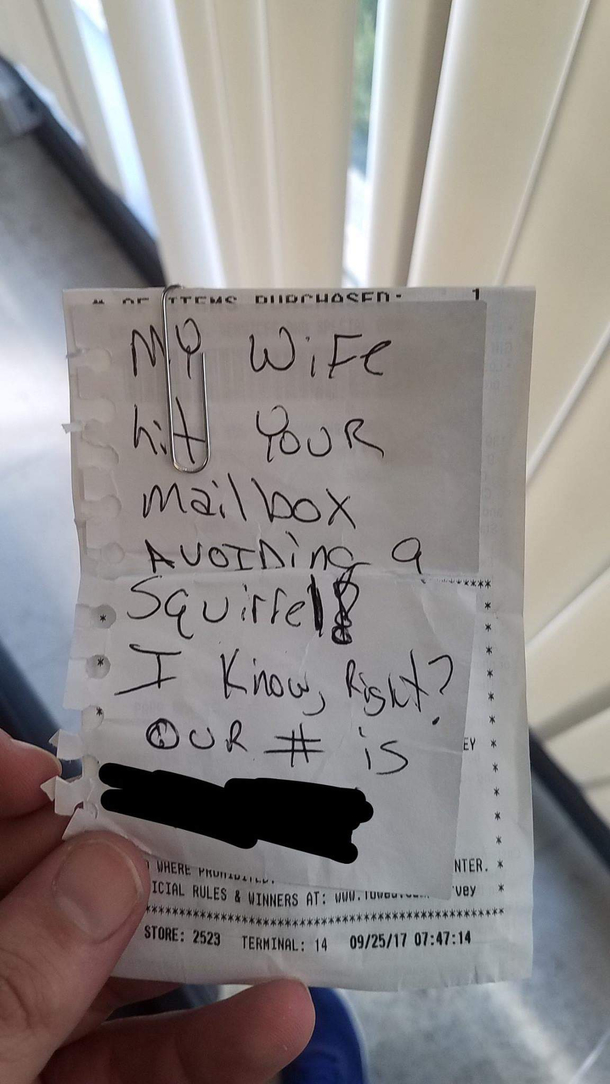 # OF ITEMS PURCHASED: 1
MY WiFe
hit YOUR
mailbox
AVOIDing a
Squirrel!
I Know, Right?
OUR # is
EY
WHERE PROHIBITED. NTER. *
ICIAL RULES & WINNERS AT: vey *
STORE: 2523 TERMINAL: 14 09/25/17 07:47:14